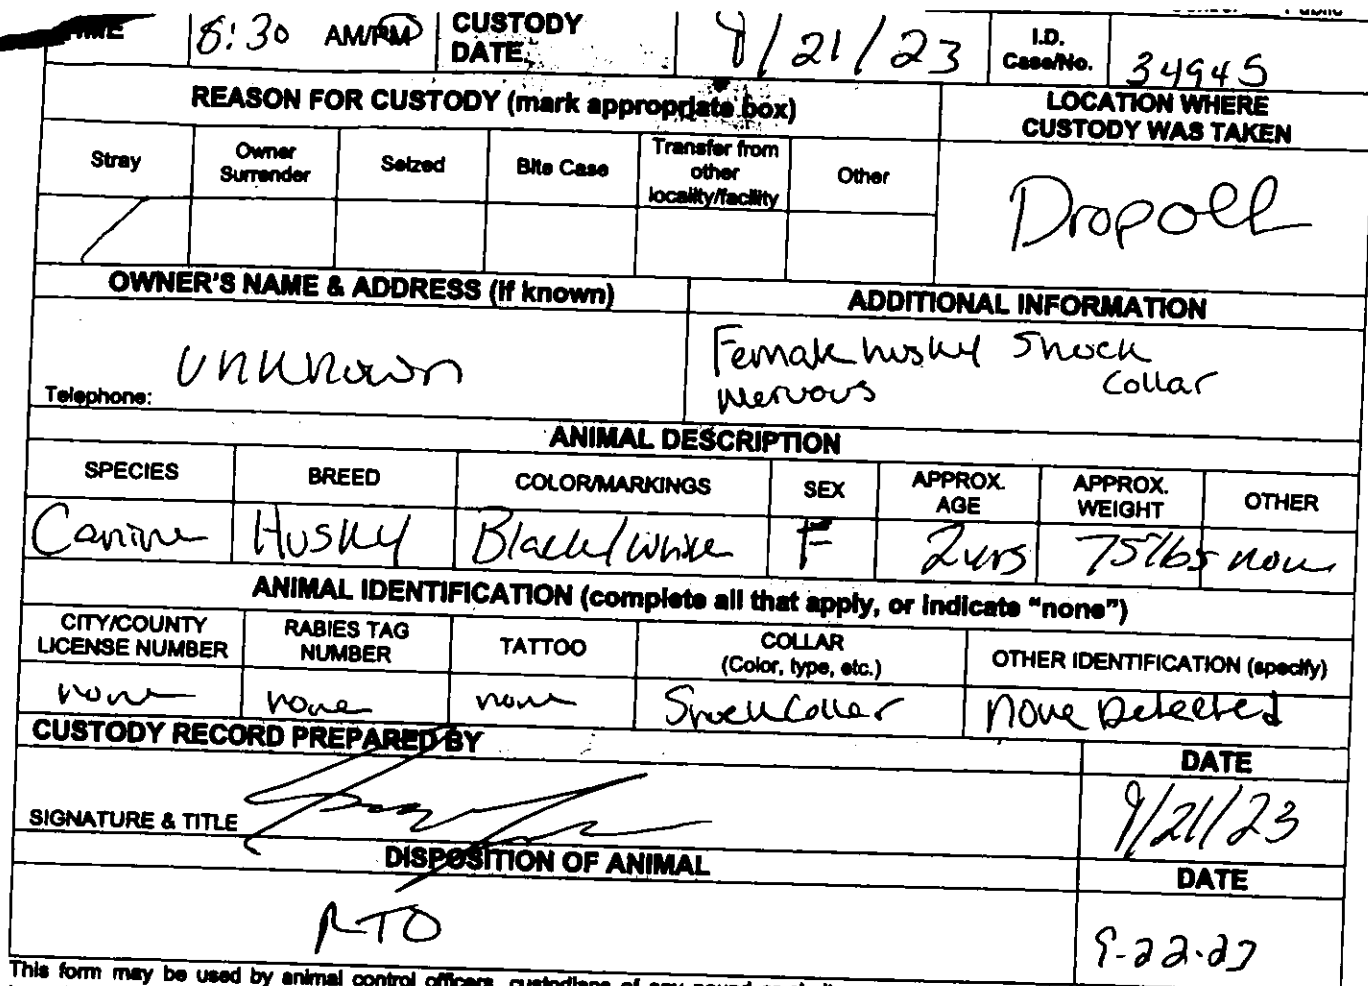 TIME 8:30 AM/PM CUSTODY DATE 9/21/23 I.D. Case/No. 34945
REASON FOR CUSTODY (mark appropriate box) LOCATION WHERE CUSTODY WAS TAKEN
Stray Owner Surrender Seized Bite Case Transfer from other locality/facility Other
/ Dropoff
OWNER'S NAME & ADDRESS (if known) ADDITIONAL INFORMATION
unknown Female husky Shock Collar
Telephone: nervous
ANIMAL DESCRIPTION
SPECIES BREED COLOR/MARKINGS SEX APPROX. AGE APPROX. WEIGHT OTHER
Canine Husky Black/white F 2yrs 75lbs none
ANIMAL IDENTIFICATION (complete all that apply, or indicate "none")
CITY/COUNTY LICENSE NUMBER RABIES TAG NUMBER TATTOO COLLAR (Color, type, etc.) OTHER IDENTIFICATION (specify)
none none none Shock Collar None Detected
CUSTODY RECORD PREPARED BY DATE
SIGNATURE & TITLE 9/21/23
DISPOSITION OF ANIMAL DATE
RTO 9-22-23
This form may be used by animal control officers, custodians of any pound